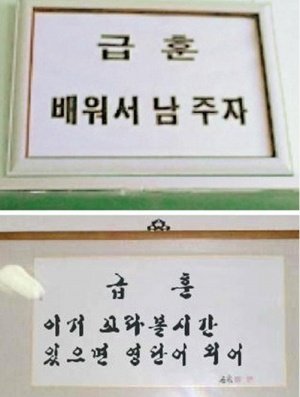 급 훈
배워서 남 주자
급 훈
이거 꼬라볼시간
있으면 영단어 외워